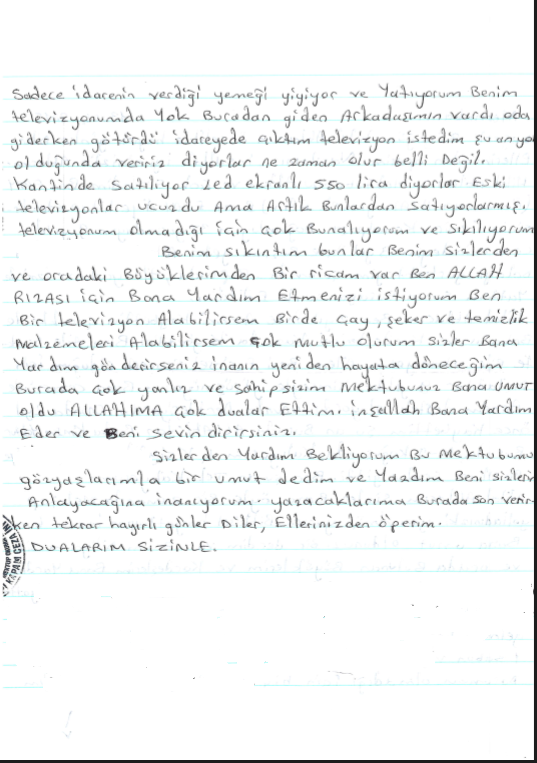 Sadece idarenin verdiği yemeği yiyiyor ve Yatıyorum Benim
televizyonumda Yok Buradan giden Arkadaşımın vardı oda
giderken götürdü idareyede çıktım televizyon istedim şu an yok
olduğunda veririz diyorlar ne zaman olur belli Değil.
Kantinde satılıyor Led ekranlı 550 lira diyorlar Eski
televizyonlar ucuzdu Ama Artık Bunlardan satıyorlarmış.
televizyonum olmadığı için çok Bunalıyorum ve sıkılıyorum
Benim sıkıntım bunlar Benim sizlerden
ve oradaki Büyüklerimden Bir ricam var Ben ALLAH
RIZASI için Bana Yardım Etmenizi istiyorum Ben
Bir televizyon Alabilirsem Birde Çay, şeker ve temizlik
malzemeleri Alabilirsem çok mutlu olurum sizler Bana
Yardım gönderirseniz inanın yeniden hayata döneceğim
Burada çok yanlız ve sahipsizim mektubunuz Bana UMUT
oldu ALLAHIMA çok dualar Ettim. inşallah Bana Yardım
Eder ve Beni sevindirirsiniz.
Sizlerden Yardım Bekliyorum Bu mektubumu
gözyaşlarımla bir umut dedim ve Yazdım Beni sizlerin
Anlayacağına inanıyorum. yazacaklarıma Burada son verir-
ken tekrar hayırlı günler Diler, Ellerinizden öperim.
DUALARIM SİZİNLE.
KAPALI CEZA